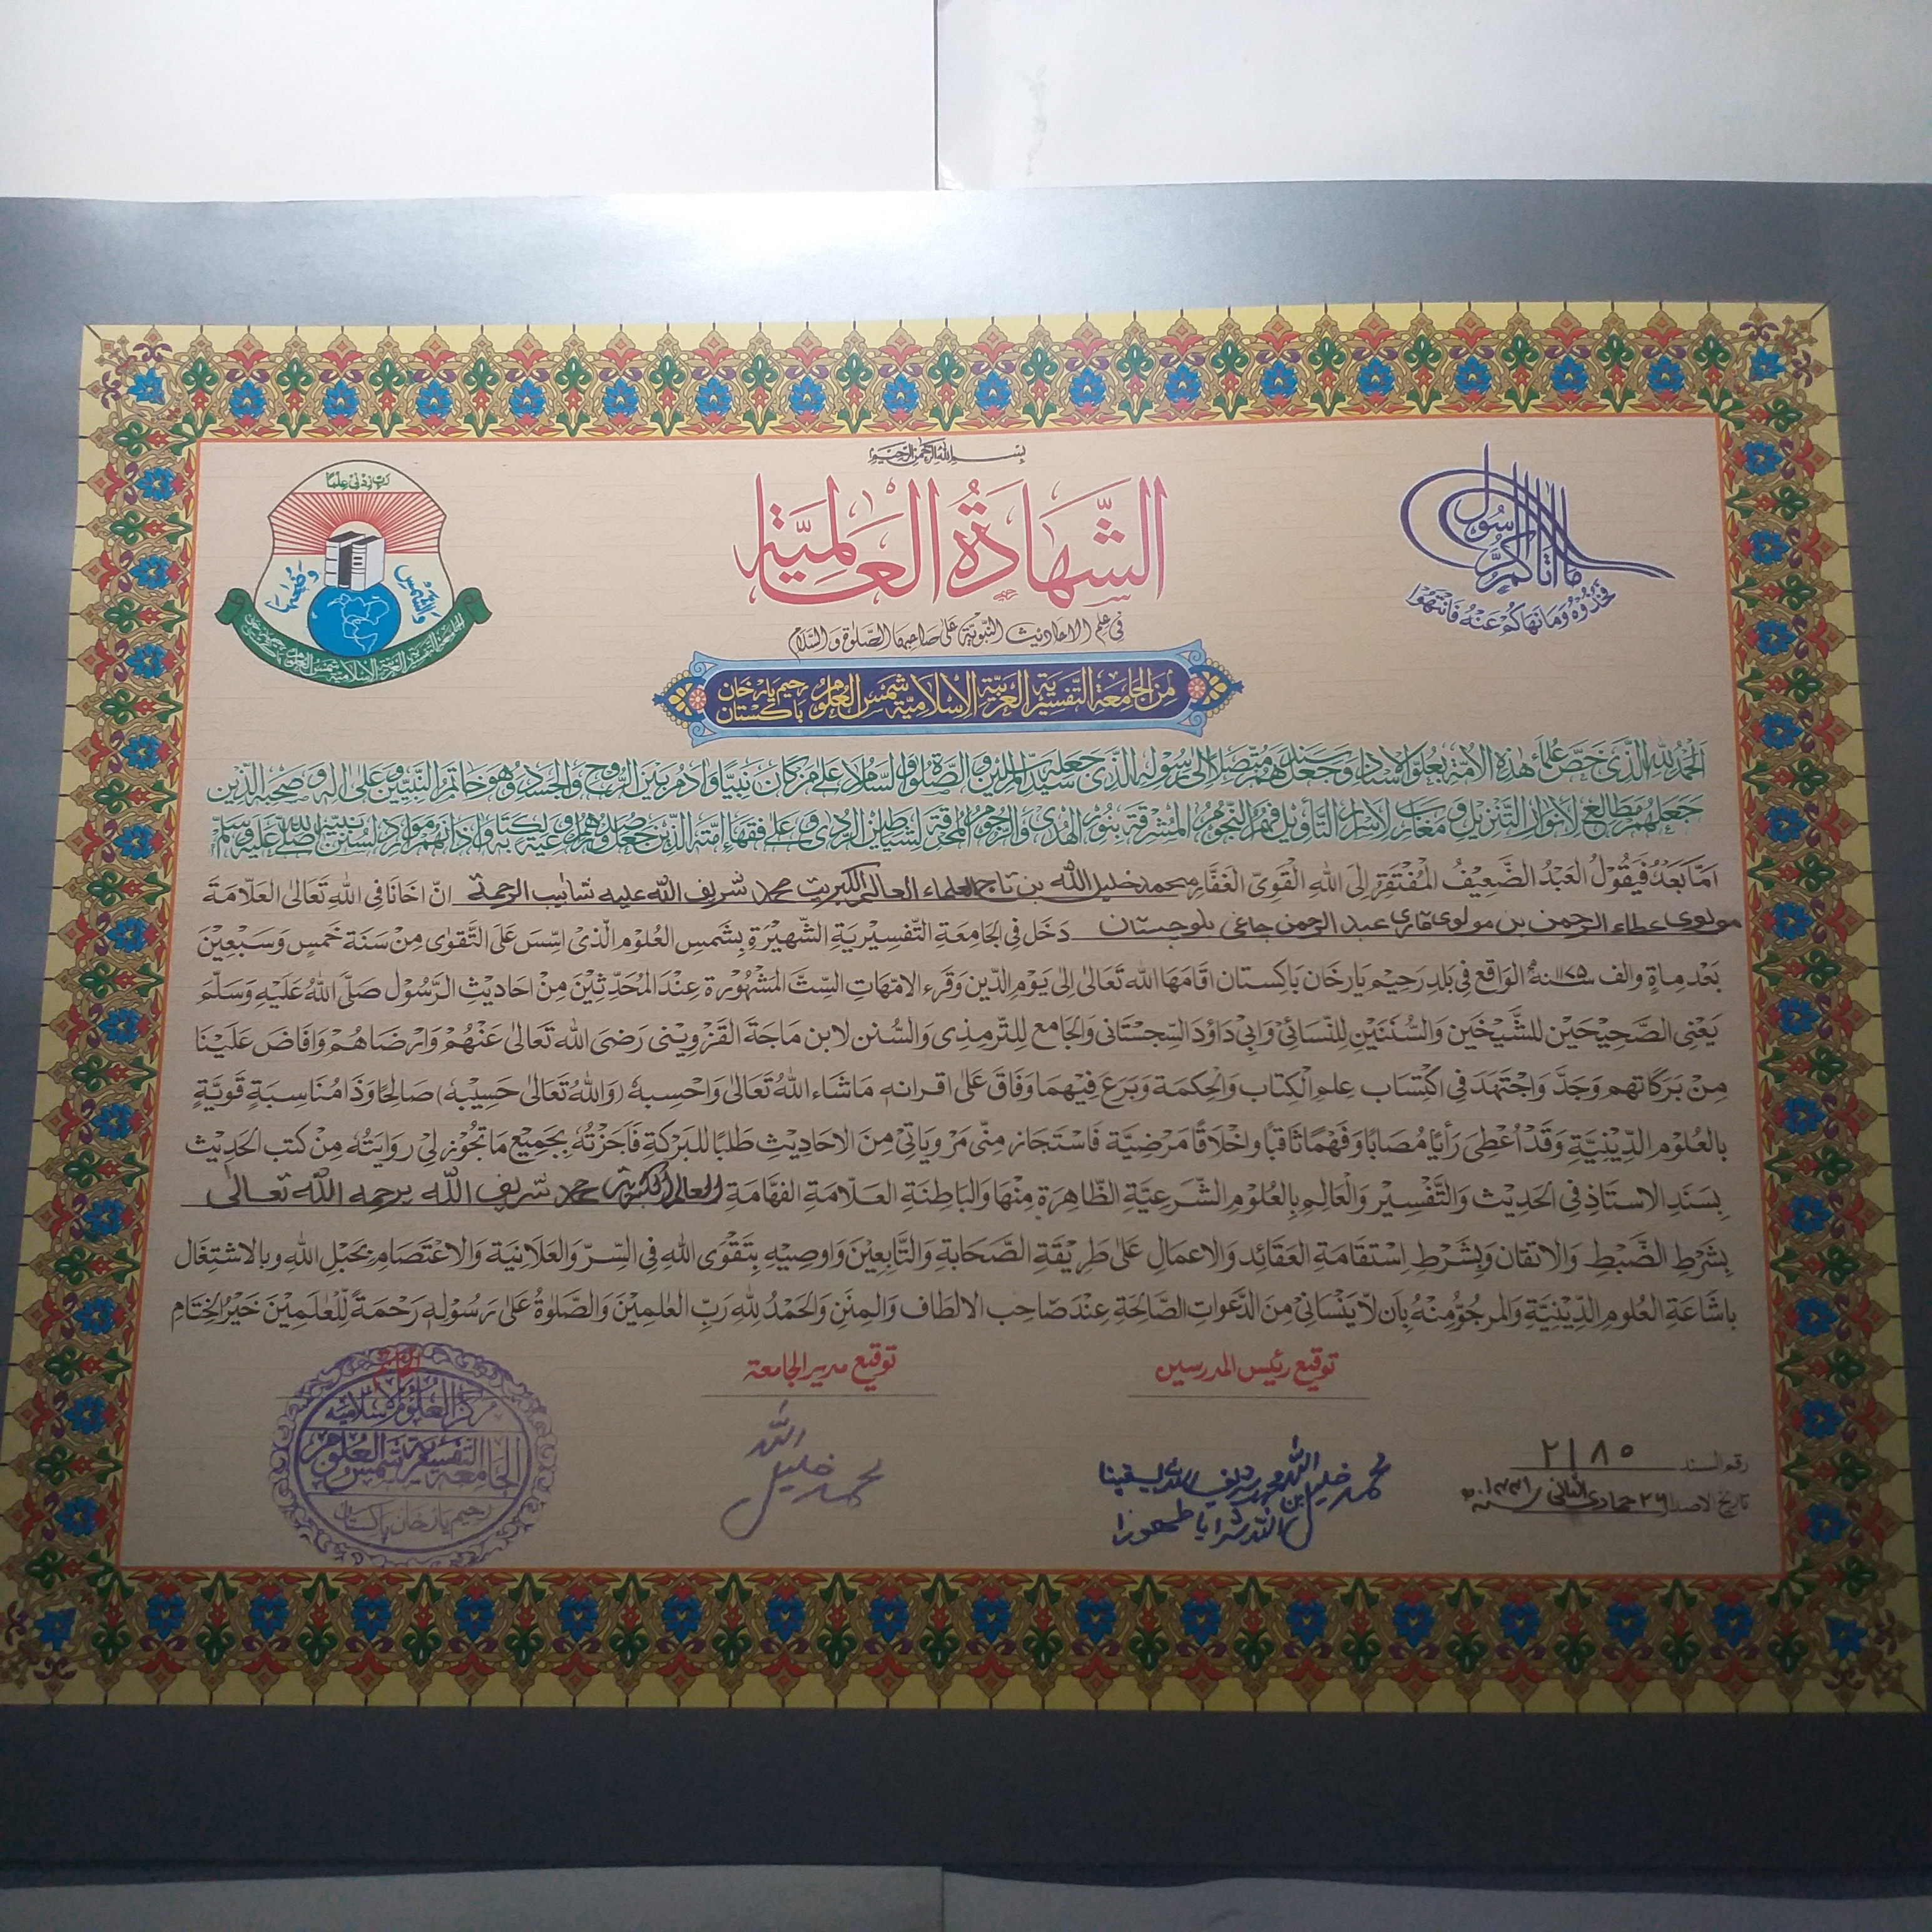 بِسْمِ اللهِ الرَّحْمٰنِ الرَّحِيْمِ
رَبِّ زِدْنِي عِلْمًا
وَالشَّمْسِ وَضُحٰهَا
الجامعة التفسيرية العربية الاسلامية شمس العلوم
الشَّهَادَةُ العَالَمِيَّة
مَا اٰتَاكُمُ الرَّسُوْلُ
فَخُذُوْهُ وَمَا نَهَاكُمْ عَنْهُ فَانْتَهُوْا
في علم الاحاديث النبويّة على صاحبها الصّلوة والسّلام
مِنَ الجَامِعَةِ التَّفْسِيْرِيَةِ العَرَبِيَّةِ الاِسْلَامِيَّةِ شَمْسِ العُلُوْمِ رحیم یار خان باکستان
الْحَمْدُ لِلّٰهِ الَّذِيْ خَصَّ عُلَمَاءَ هٰذِهِ الأُمَّةِ بِعُلُوِّ الاِسْنَادِ وَجَعَلَ سَنَدَهُمْ مُتَّصِلًا اِلٰى رَسُوْلِهِ الَّذِيْ جَعَلَهُ سَيِّدَ المُرْسَلِيْنَ وَالصَّلٰوةُ وَالسَّلَامُ عَلٰى مَنْ كَانَ نَبِيًّا وَاٰدَمُ بَيْنَ الرُّوْحِ وَالجَسَدِ وَهُوَ خَاتَمُ النَّبِيِّيْنَ وَعَلٰى اٰلِهِ وَصَحْبِهِ الَّذِيْنَ
جَعَلَهُمْ مَطَالِعَ لِاَنْوَارِ التَّنْزِيْلِ وَمَغَارِبَ لِاَسْرَارِ التَّأْوِيْلِ فَهُمُ النُّجُوْمُ المُشْرِقَةُ بِنُوْرِ الهُدٰى وَالرُّجُوْمُ المُحْرِقَةُ لِشَيَاطِيْنِ الرَّدٰى وَعَلٰى فُقَهَاءِ اُمَّتِهِ الَّذِيْنَ جَعَلَ صُدُوْرَهُمْ اَوْعِيَةَ كِتَابِهِ وَاٰذَانَهُمْ مَوَارِدَ لِسُنَنِ نَبِيِّهِ صَلَّى اللهُ عَلَيْهِ وَسَلَّمَ
اَمَّا بَعْدُ فَيَقُوْلُ العَبْدُ الضَّعِيْفُ المُفْتَقِرُ اِلَى اللهِ القَوِيِّ الغَفَّارِ محمد خليل الله بن تاج العلماء العالم الكبير محمد شريف الله عليه شآبيب الرحمة اِنَّ اَخَانَا فِي اللهِ تَعَالٰى العَلَّامَةَ
مولوی عطاء الرحمن بن مولوی قاری عبد الرحمن چاغی بلوچستان دَخَلَ فِي الجَامِعَةِ التَّفْسِيْرِيَةِ الشَّهِيْرَةِ بِشَمْسِ العُلُوْمِ الَّذِيْ اُسِّسَ عَلَى التَّقْوٰى مِنْ سَنَةِ خَمْسٍ وَسَبْعِيْنَ
بَعْدَ مِاةٍ وَالف سنة ١١٧٥ الوَاقِع فِي بَلَدِ رَحِيْم يَار خَان بَاكِسْتَان اَقَامَهَا اللهُ تَعَالٰى اِلٰى يَوْمِ الدِّيْنِ وَقَرَءَ الاُمَّهَاتِ السِّتَّ المَشْهُوْرَةَ عِنْدَ المُحَدِّثِيْنَ مِنْ اَحَادِيْثِ الرَّسُوْلِ صَلَّى اللهُ عَلَيْهِ وَسَلَّمَ
يَعْنِي الصَّحِيْحَيْنِ لِلشَّيْخَيْنِ وَالسُّنَنَيْنِ لِلنَّسَائِيْ وَاَبِيْ دَاوُدَ السِّجِسْتَانِي وَالجَامِع لِلتِّرْمِذِي وَالسُّنَن لِابْنِ مَاجَةَ القَزْوِيْنِي رَضِيَ اللهُ تَعَالٰى عَنْهُمْ وَاَرْضَاهُمْ وَاَفَاضَ عَلَيْنَا
مِنْ بَرَكَاتِهِمْ وَجَدَّ وَاجْتَهَدَ فِي اكْتِسَابِ عِلْمِ الْكِتَابِ وَالْحِكْمَةِ وَبَرَعَ فِيْهِمَا وَفَاقَ عَلٰى اَقْرَانِهِ مَاشَاءَ اللهُ تَعَالٰى وَاَحْسِبُهُ (وَاللهُ تَعَالٰى حَسِيْبُهُ) صَالِحًا وَذَا مُنَاسَبَةٍ قَوِيَّةٍ
بِالعُلُوْمِ الدِّيْنِيَّةِ وَقَدْ اُعْطِيَ رَأْيًا مُصَابًا وَفَهْمًا ثَاقِبًا وَاَخْلَاقًا مَرْضِيَّةً فَاسْتَجَازَ مِنِّي مَرْوِيَاتِيْ مِنَ الاَحَادِيْثِ طَلَبًا لِلبَرَكَةِ فَاَجَزْتُهُ بِجَمِيْعِ مَا تَجُوْزُ لِيْ رِوَايَتُهُ مِنْ كُتُبِ الحَدِيْثِ
بِسَنَدِ الاُسْتَاذِ فِي الحَدِيْثِ وَالتَّفْسِيْرِ وَالْعَالِمِ بِالعُلُوْمِ الشَّرْعِيَّةِ الظَّاهِرَةِ مِنْهَا وَالبَاطِنَةِ العَلَّامَةِ الفَهَّامَةِ العالم الكبير محمد شريف الله يرحمه الله تعالى
بِشَرْطِ الضَّبْطِ وَالاِتْقَانِ وَبِشَرْطِ اِسْتِقَامَةِ العَقَائِدِ وَالاَعْمَالِ عَلٰى طَرِيْقَةِ الصَّحَابَةِ وَالتَّابِعِيْنَ وَاُوْصِيْهِ بِتَقْوَى اللهِ فِي السِّرِّ وَالعَلَانِيَةِ وَالاِعْتِصَامِ بِحَبْلِ اللهِ وَبِالاشْتِغَالِ
بِاشَاعَةِ العُلُوْمِ الدِّيْنِيَّةِ وَالمَرْجُوُّ مِنْهُ بِاَنْ لَا يَنْسَانِيْ مِنَ الدَّعَوَاتِ الصَّالِحَةِ عِنْدَ صَاحِبِ الاَلْطَافِ وَالمِنَنِ وَالحَمْدُ لِلّٰهِ رَبِّ العٰلَمِيْنَ وَالصَّلٰوةُ عَلٰى رَسُوْلِهِ رَحْمَةً لِّلْعٰلَمِيْنَ خَيْرُ الخِتَامِ
توقيع رئيس المدرسين
توقيع مدير الجامعة
محمد خليل الله
محمد خليل الله بن محمد شريف الله
شرابا طهورا
رقم السند ٢١٨٥
تاريخ الاصدار ٢٦ جمادى الثانى
مركز العلوم الاسلامية
الجامعة التفسيرية شمس العلوم
رحیم یار خان پاکستان